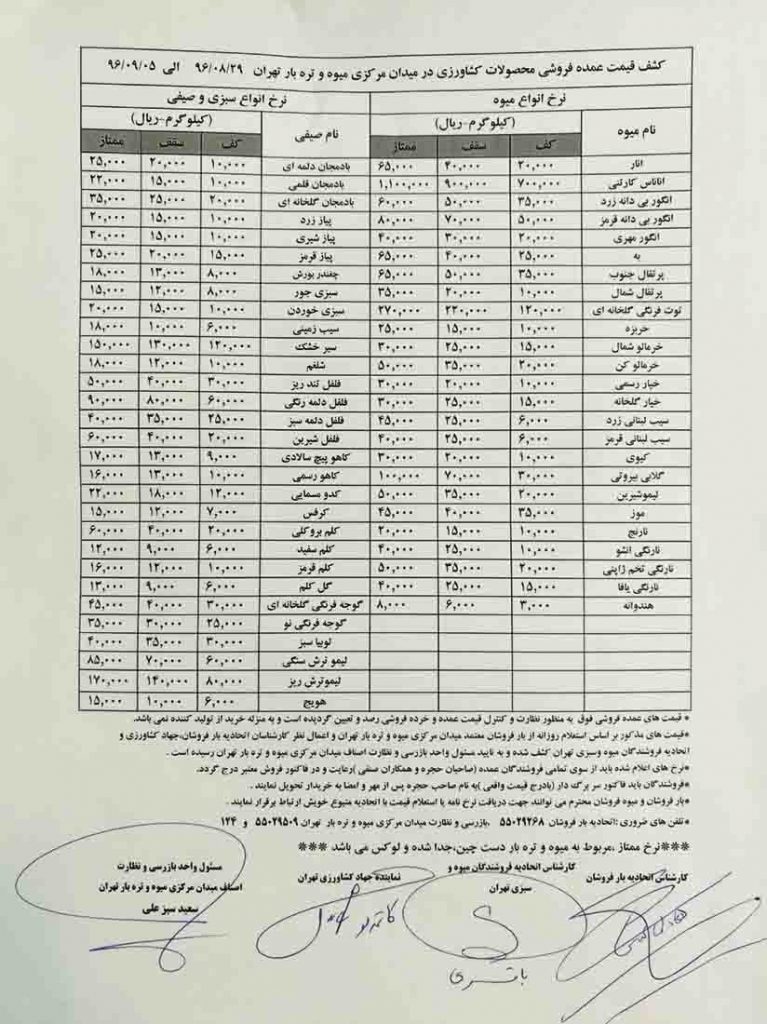 کشف قیمت عمده فروشی محصولات کشاورزی در میدان مرکزی میوه و تره بار تهران ۹۶/۰۸/۲۹ الی ۹۶/۰۹/۰۵
نرخ انواع میوه نرخ انواع سبزی و صیفی
نام میوه (کیلوگرم-ریال) نام صیفی (کیلوگرم-ریال)
کف سقف ممتاز کف سقف ممتاز
انار ۲۰,۰۰۰ ۴۰,۰۰۰ ۶۵,۰۰۰ بادمجان دلمه ای ۱۰,۰۰۰ ۲۰,۰۰۰ ۲۵,۰۰۰
اناناس کارتنی ۷۰۰,۰۰۰ ۹۰۰,۰۰۰ ۱,۱۰۰,۰۰۰ بادمجان قلمی ۱۰,۰۰۰ ۱۵,۰۰۰ ۲۲,۰۰۰
انگور بی دانه زرد ۳۵,۰۰۰ ۵۰,۰۰۰ ۶۰,۰۰۰ بادمجان گلخانه ای ۲۰,۰۰۰ ۲۵,۰۰۰ ۳۵,۰۰۰
انگور بی دانه قرمز ۵۰,۰۰۰ ۷۰,۰۰۰ ۸۰,۰۰۰ پیاز زرد ۱۰,۰۰۰ ۱۵,۰۰۰ ۲۰,۰۰۰
انگور مهری ۲۰,۰۰۰ ۳۰,۰۰۰ ۴۰,۰۰۰ پیاز شیری ۱۰,۰۰۰ ۱۵,۰۰۰ ۲۰,۰۰۰
به ۲۵,۰۰۰ ۴۰,۰۰۰ ۶۵,۰۰۰ پیاز قرمز ۱۵,۰۰۰ ۲۰,۰۰۰ ۲۵,۰۰۰
پرتقال جنوب ۳۵,۰۰۰ ۵۰,۰۰۰ ۶۵,۰۰۰ چغندر بورش ۸,۰۰۰ ۱۳,۰۰۰ ۱۸,۰۰۰
پرتقال شمال ۱۰,۰۰۰ ۲۰,۰۰۰ ۳۵,۰۰۰ سبزی جور ۸,۰۰۰ ۱۲,۰۰۰ ۱۵,۰۰۰
توت فرنگی گلخانه ای ۱۲۰,۰۰۰ ۲۲۰,۰۰۰ ۲۷۰,۰۰۰ سبزی خوردن ۱۰,۰۰۰ ۱۵,۰۰۰ ۲۰,۰۰۰
خربزه ۱۰,۰۰۰ ۱۵,۰۰۰ ۲۵,۰۰۰ سیب زمینی ۶,۰۰۰ ۱۰,۰۰۰ ۱۸,۰۰۰
خرمالو شمال ۱۵,۰۰۰ ۲۵,۰۰۰ ۳۰,۰۰۰ سیر خشک ۱۲۰,۰۰۰ ۱۳۰,۰۰۰ ۱۵۰,۰۰۰
خرمالو کن ۲۰,۰۰۰ ۳۵,۰۰۰ ۵۰,۰۰۰ شلغم ۱۰,۰۰۰ ۱۲,۰۰۰ ۱۸,۰۰۰
خیار رسمی ۱۰,۰۰۰ ۲۰,۰۰۰ ۳۰,۰۰۰ فلفل تند ریز ۳۰,۰۰۰ ۴۰,۰۰۰ ۵۰,۰۰۰
خیار گلخانه ۱۵,۰۰۰ ۲۵,۰۰۰ ۳۰,۰۰۰ فلفل دلمه رنگی ۶۰,۰۰۰ ۸۰,۰۰۰ ۹۰,۰۰۰
سیب لبنانی زرد ۶,۰۰۰ ۲۵,۰۰۰ ۴۵,۰۰۰ فلفل دلمه سبز ۲۵,۰۰۰ ۳۵,۰۰۰ ۴۰,۰۰۰
سیب لبنانی قرمز ۶,۰۰۰ ۲۵,۰۰۰ ۴۰,۰۰۰ فلفل شیرین ۲۰,۰۰۰ ۴۰,۰۰۰ ۶۰,۰۰۰
کیوی ۱۰,۰۰۰ ۲۰,۰۰۰ ۳۰,۰۰۰ کاهو پیچ سالادی ۹,۰۰۰ ۱۳,۰۰۰ ۱۷,۰۰۰
گلابی بیروتی ۳۰,۰۰۰ ۷۰,۰۰۰ ۱۰۰,۰۰۰ کاهو رسمی ۱۰,۰۰۰ ۱۳,۰۰۰ ۱۶,۰۰۰
لیموشیرین ۲۰,۰۰۰ ۳۵,۰۰۰ ۵۰,۰۰۰ کدو مسمایی ۱۲,۰۰۰ ۱۸,۰۰۰ ۲۲,۰۰۰
موز ۳۵,۰۰۰ ۴۰,۰۰۰ ۴۵,۰۰۰ کرفس ۷,۰۰۰ ۱۲,۰۰۰ ۱۵,۰۰۰
نارنج ۱۰,۰۰۰ ۱۵,۰۰۰ ۲۰,۰۰۰ کلم بروکلی ۲۰,۰۰۰ ۴۰,۰۰۰ ۶۰,۰۰۰
نارنگی انشو ۱۰,۰۰۰ ۲۵,۰۰۰ ۴۰,۰۰۰ کلم سفید ۶,۰۰۰ ۹,۰۰۰ ۱۲,۰۰۰
نارنگی تخم ژاپنی ۲۰,۰۰۰ ۳۵,۰۰۰ ۵۰,۰۰۰ کلم قرمز ۱۰,۰۰۰ ۱۲,۰۰۰ ۱۶,۰۰۰
نارنگی یافا ۱۵,۰۰۰ ۲۵,۰۰۰ ۴۰,۰۰۰ گل کلم ۶,۰۰۰ ۹,۰۰۰ ۱۳,۰۰۰
هندوانه ۳,۰۰۰ ۶,۰۰۰ ۸,۰۰۰ گوجه فرنگی گلخانه ای ۳۰,۰۰۰ ۴۰,۰۰۰ ۴۵,۰۰۰
گوجه فرنگی نو ۲۵,۰۰۰ ۳۰,۰۰۰ ۳۵,۰۰۰
لوبیا سبز ۳۰,۰۰۰ ۳۵,۰۰۰ ۴۰,۰۰۰
لیمو ترش سنگی ۶۰,۰۰۰ ۷۰,۰۰۰ ۸۵,۰۰۰
لیموترش ریز ۸۰,۰۰۰ ۱۴۰,۰۰۰ ۱۷۰,۰۰۰
هویج ۶,۰۰۰ ۱۰,۰۰۰ ۱۵,۰۰۰
* قیمت های عمده فروشی فوق به منظور نظارت و کنترل قیمت عمده و خرده فروشی رصد و تعیین گردیده است و به منزله خرید از تولید کننده نمی باشد.
*قیمت های مذکور بر اساس استعلام روزانه از بار فروشان معتمد میدان مرکزی میوه و تره بار تهران و اعمال نظر کارشناسان اتحادیه بار فروشان،جهاد کشاورزی و
اتحادیه فروشندگان میوه وسبزی تهران کشف شده و به تایید مسئول واحد بازرسی و نظارت اصناف میدان مرکزی میوه و تره بار تهران رسیده است .
*نرخ های اعلام شده باید از سوی تمامی فروشندگان عمده (صاحبان حجره و همکاران صنفی )رعایت و در فاکتور فروش معتبر درج گردد.
*فروشندگان باید فاکتور سر برگه دار (بادرج قیمت واقعی )به نام صاحب حجره پس از مهر و امضا به خریدار تحویل نمایند .
*بار فروشان و میوه فروشان محترم می توانند جهت دریافت نرخ نامه یا استعلام قیمت با اتحادیه متبوع خویش ارتباط برقرار نمایند .
*تلفن های ضروری :اتحادیه بار فروشان ۵۵۰۲۹۲۶۸ ،بازرسی و نظارت میدان مرکزی میوه و تره بار تهران ۵۵۰۲۹۵۰۹ و ۱۲۴
***نرخ ممتاز ،مربوط به میوه و تره بار دست چین،جدا شده و لوکس می باشد ***
کارشناس اتحادیه بار فروشان
کارشناس اتحادیه فروشندگان میوه و
سبزی تهران
نماینده جهاد کشاورزی تهران
مسئول واحد بازرسی و نظارت
اصناف میدان مرکزی میوه و تره بار تهران
سعید سبز علی